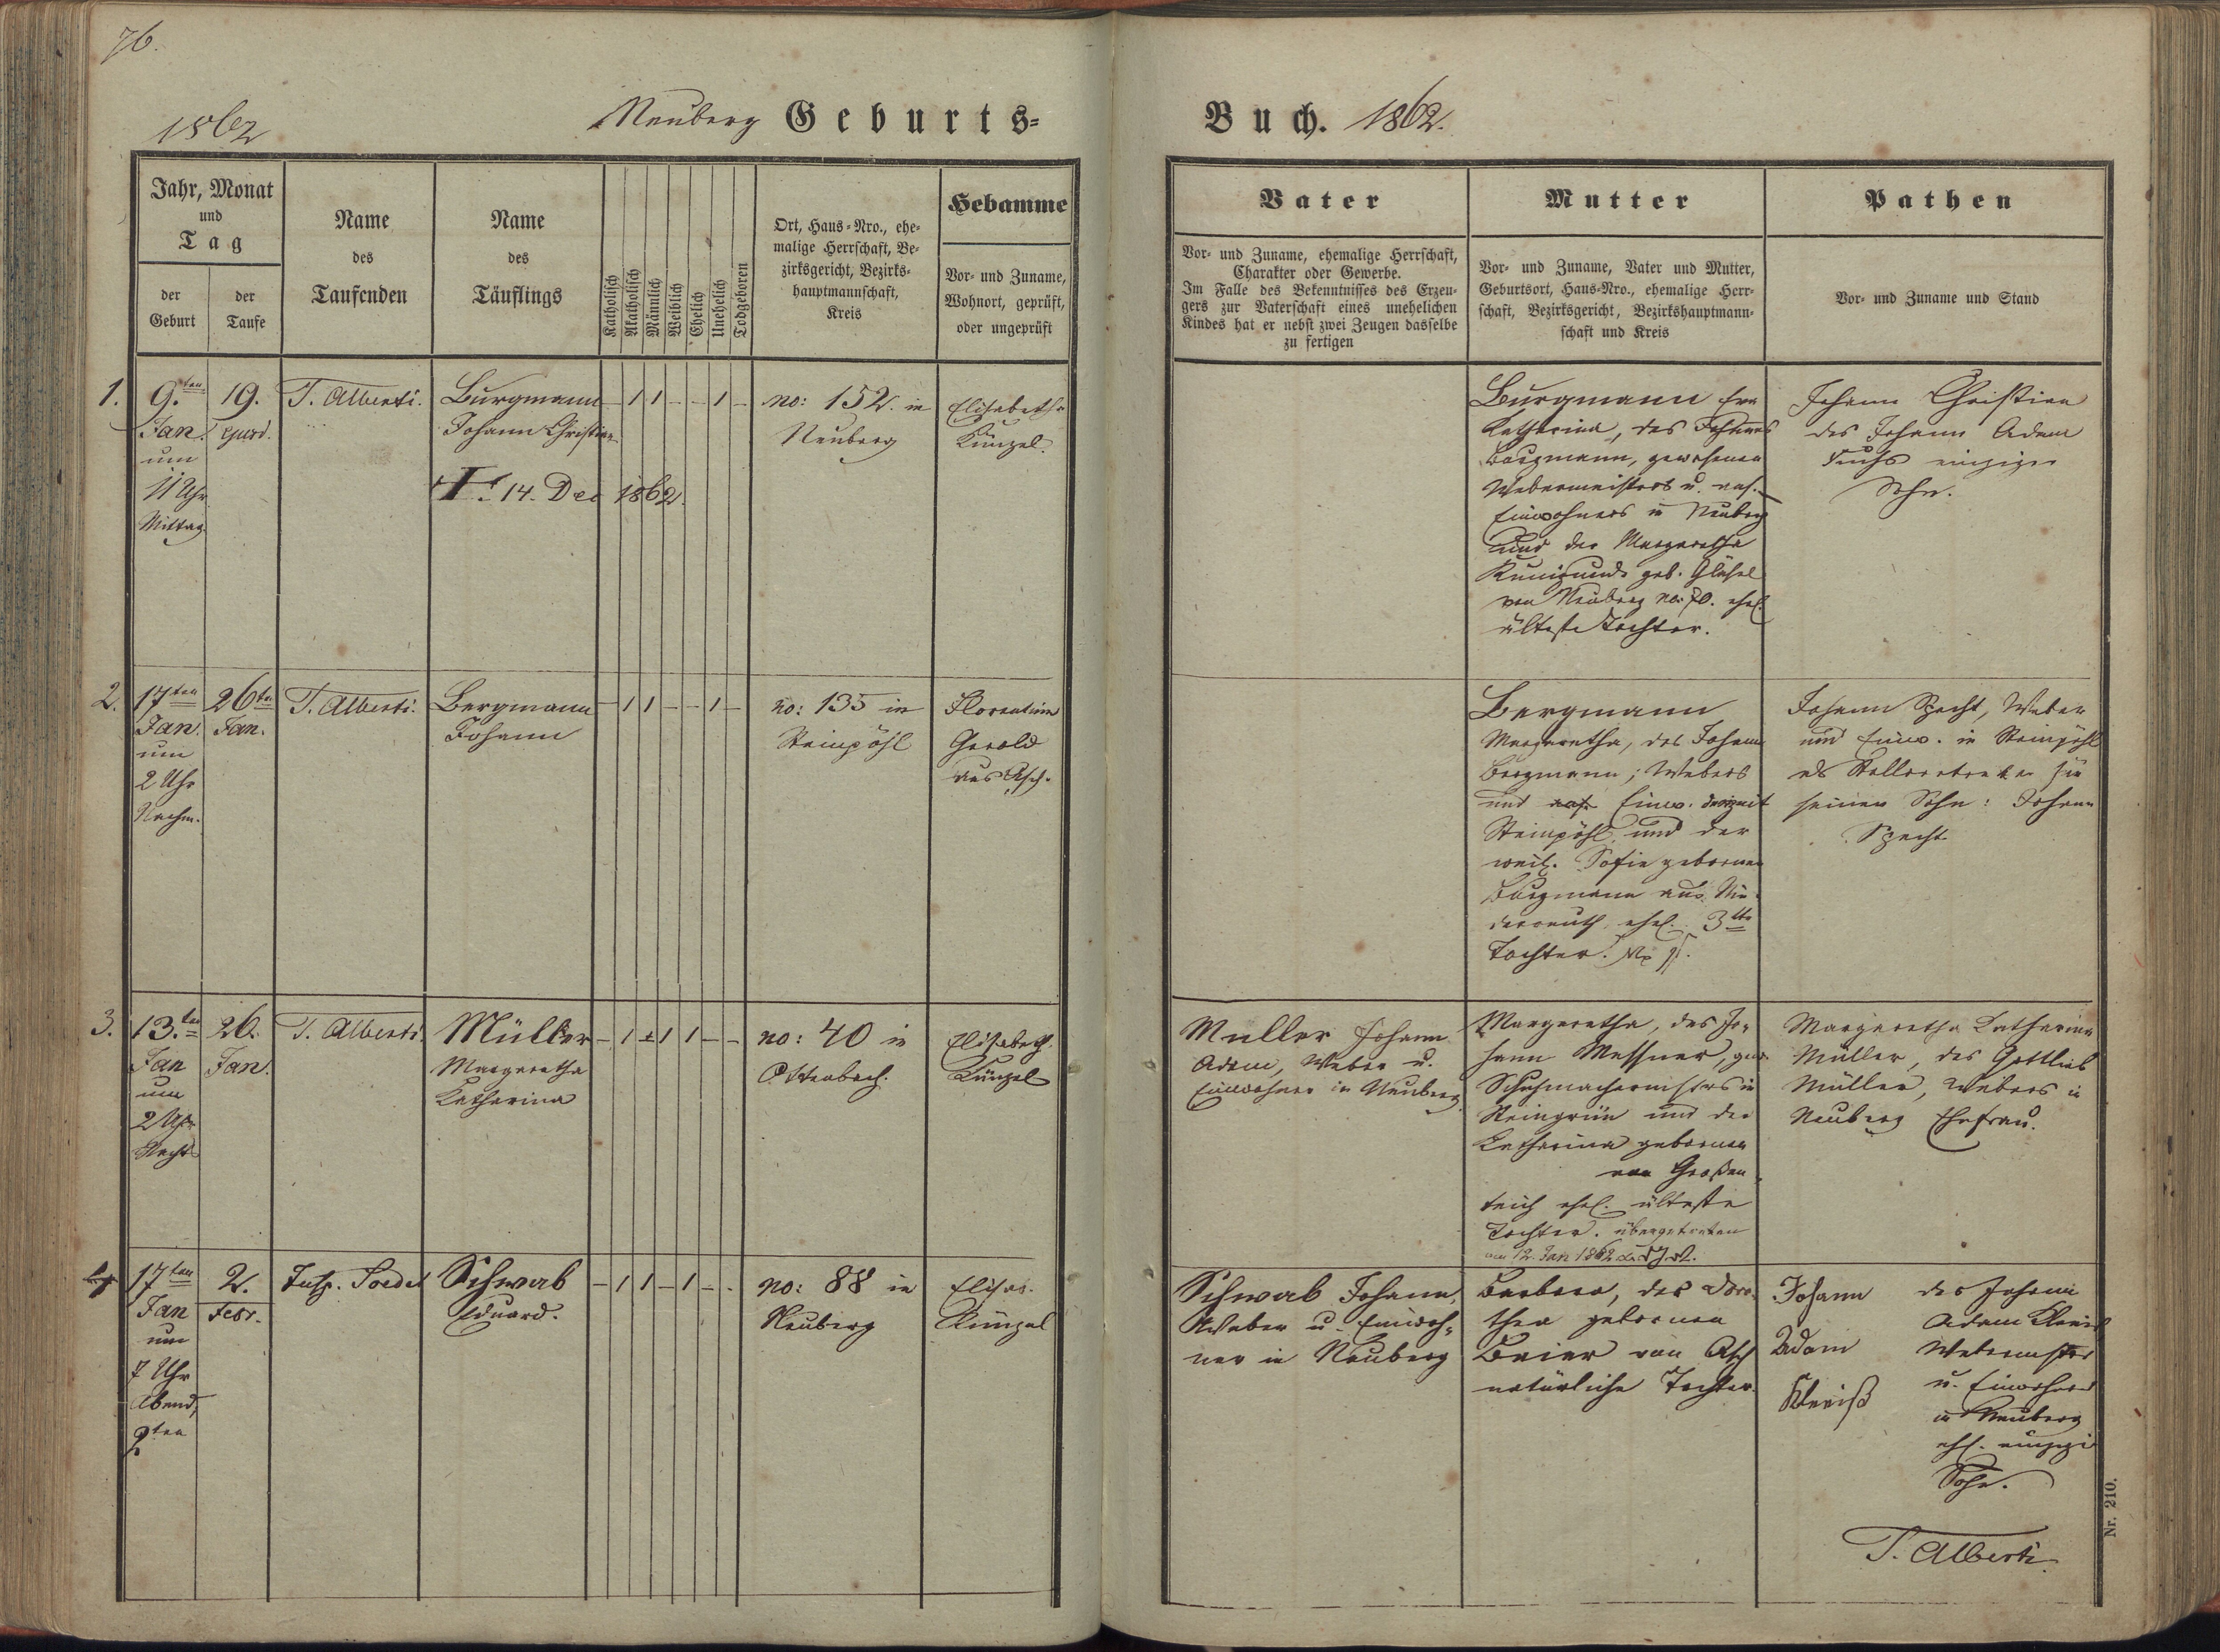 76.
1862
Neuberg Geburts=
Buch. 1862.
Jahr, Monat
und
Tag
der
Geburt
der
Taufe
Name
des
Taufenden
Name
des
Täuflings
Katholisch
Akatholisch
Männlich
Weiblich
Ehelich
Unehelich
Todgeboren
Ort, Haus=Nro., ehe=
malige Herrschaft, Be=
zirksgericht, Bezirks=
hauptmannschaft,
Kreis
Hebamme
Vor= und Zuname,
Wohnort, geprüft,
oder ungeprüft
Vater
Vor= und Zuname, ehemalige Herrschaft,
Charakter oder Gewerbe.
Im Falle des Bekenntnisses des Erzeu=
gers zur Vaterschaft eines unehelichen
Kindes hat er nebst zwei Zeugen dasselbe
zu fertigen
Mutter
Vor= und Zuname, Vater und Mutter,
Geburtsort, Haus=Nro., ehemalige Herr=
schaft, Bezirksgericht, Bezirkshauptmann=
schaft und Kreis
Pathen
Vor= und Zuname und Stand
1.
9.ten
Jan.
um
11 Uhr
Mittag
19.
ejusd.
T. Alberti.
Burgmann
Johann Christian
†. 14. Dec 1862.
– 1 1 – – 1 –
no: 152. in
Neuberg
Elisabetha
Künzel.
Burgmann Eva
Katharina, des Johannes
Burgmann, gewesenen
Webermeisters u. ans.
Einwohners in Neuberg
und der Margaretha
Kunigunde geb. Gläsel
von Neuberg no: 70. ehel.
älteste Tochter.
Johann Christian
des Johann Adam
Fuchs einziger
Sohn.
2.
17ten
Jan.
um
2 Uhr
Nachm.
26ten
Jan.
T. Alberti.
Bergmann
Johann
– 1 1 – – 1 –
no: 135 in
Steinpöhl
Florentine
Gerold
aus Asch.
Bergmann
Margaretha, des Johann
Bergmann, Webers
und Einw. derzeit
Steinpöhl und der
weil. Sofie gebornen
Burgmann aus Nie=
derreuth, ehel. 3te
Tochter.
Johann Specht, Weber
und Einw. in Steinpöhl
als Stellvertreter für
seinen Sohn: Johann
Specht
3.
13.ten
Jan
um
2 Uhr
Nachts
26.
Jan.
T. Alberti.
Müller
Margaretha
Katharina
– 1 1 1 – –
no: 40 in
Ottenbach.
Elisabeth.
Künzel
Müller Johann
Adam, Weber u.
Einwohner in Neuberg.
Margaretha, des Jo=
hann Messner, gew.
Schuhmachermeisters in
Steingrün und der
Katharina gebornen
von Großen
teich ehel. älteste
Tochter. übergetreten
am 12. Jan 1862
Margaretha Katharina
Müller, des Gottlieb
Müller, Webers in
Neuberg Ehefrau.
4
17ten
Jan
um
7 Uhr
Abend,
9ten
2.
Febr.
Soedel
Schwab
Eduard.
– 1 1 – 1 – –
no: 88 in
Neuberg
Elisab.
Künzel
Schwab Johann,
Weber u. Einwoh=
ner in Neuberg
Barbara, der Doro=
thea gebornen
Baier von Asch
natürliche Tochter.
Johann
Adam
des Johann
Adam
Webermstrs
u. Einwohners
in Neuberg
ehl. einziger
Sohn.
T. Alberti.
Nr. 210.